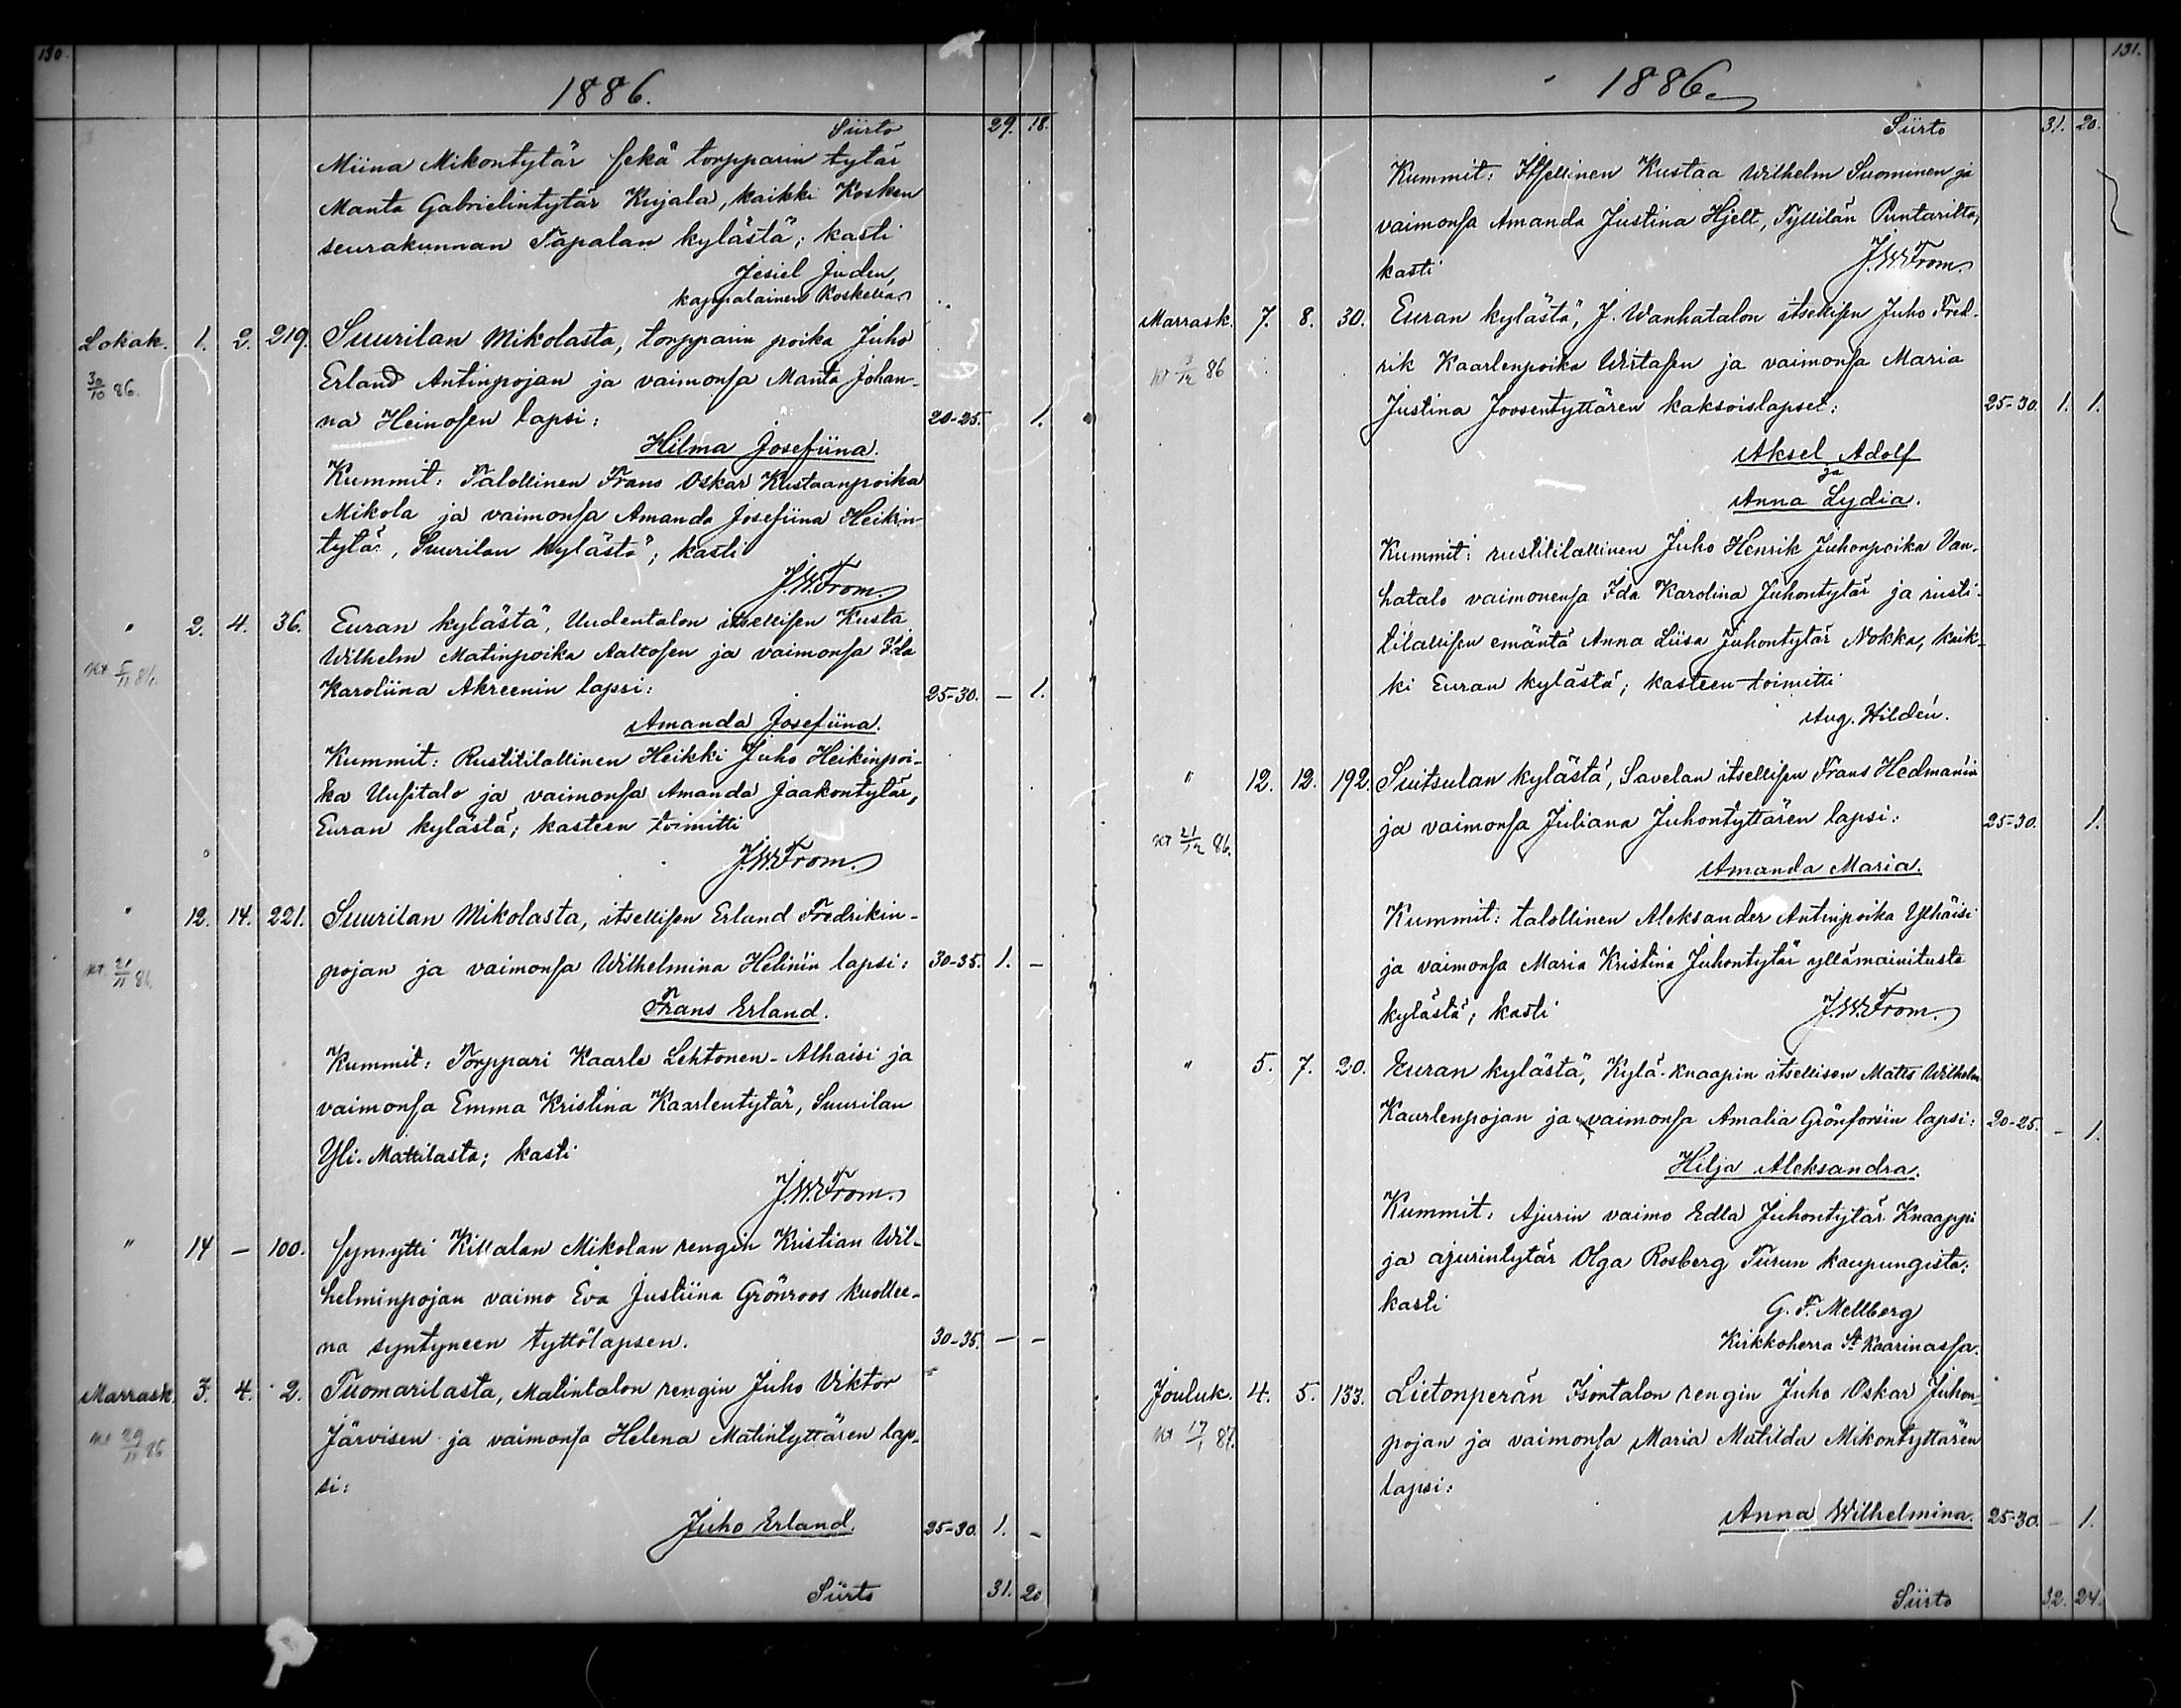 130.
1886.
Siirto 29. 18.
Miina Mikontytär sekä torpparin tytär
Manta Gabrielintytär Kujala, kaikki Kosken
seurakunnan Tapalan kylästä; kasti
Jesiel Juden,
kappalainen Koskella.
Lokak. 1. 2. 219. Suurilan Mikolasta, torpparin poika Juho
30/10 86. Erland Antinpojan ja vaimonsa Manta Johan-
na Heinosen lapsi: 20-25. 1.
Hilma Josefiina.
Kummit: Talollinen Frans Oskar Kustaanpoika
Mikola ja vaimonsa Amanda Josefiina Heikin-
tytär, Suurilan kylästä; kasti
J.W.From.
" 2. 4. 36. Euran kylästä, Uudentalon itsellisen Kusta
kt 5/11 86. Wilhelm Matinpoika Aaltosen ja vaimonsa Ida
Karoliina Akreenin lapsi: 25-30. — 1.
Amanda Josefiina.
Kummit: Rustitilallinen Heikki Juho Heikinpoi-
ka Uusitalo ja vaimonsa Amanda Jaakontytär,
Euran kylästä; kasteen toimitti
J.W.From.
" 12. 14. 221. Suurilan Mikolasta, itsellisen Erland Fredrikin-
kt. 21/11 86. pojan ja vaimonsa Wilhelmina Helin'in lapsi: 30-35. 1. —
Frans Erland.
Kummit: Torppari Kaarle Lehtonen-Alhaisi ja
vaimonsa Emma Kristina Kaarlentytär, Suurilan
Yli-Mattilasta; kasti
J.W.From.
" 14 — 100. synnytti Killalan Mikolan rengin Kristian Wil-
helminpojan vaimo Eva Justiina Grönroos kuollee-
na syntyneen tyttölapsen. 30-35. — —
Marrask. 3. 4. 2. Tuomarilasta, Matintalon rengin Juho Viktor
kt 29/11 86 Järvisen ja vaimonsa Helena Matintyttären lap-
si:
Juho Erland. 25-30. 1. —
Siirto 31. 20
131.
1886.
Siirto 31. 20.
Kummit: Itsellinen Kustaa Wilhelm Suominen ja
vaimonsa Amanda Justina Hjelt, Tyllilän Puntarilta,
kasti J.W.From.
Marrask. 7. 8. 30. Euran kylästä, J. Wanhatalon itsellisen Juho Fred-
kt /12 86 rik Kaarlenpoika Wirtasen ja vaimonsa Maria
Justina Joosentyttären kaksoislapset: 25-30. 1. 1.
Aksel Adolf
ja
Anna Lydia.
Kummit: rustitilallinen Juho Henrik Juhonpoika Van-
hatalo vaimonensa Ida Karolina Juhontytär ja rusti-
tilallisen emäntä Anna Liisa Juhontytär Nokka, kaik-
ki Euran kylästä; kasteen toimitti
Aug. Hildén.
" 12. 12. 192. Suitsulan kylästä, Savelan itsellisen Frans Hedman'in
kt 21/12 86. ja vaimonsa Juliana Juhontyttären lapsi: 25-30. 1.
Amanda Maria.
Kummit: talollinen Aleksander Antinpoika Ylhäisi
ja vaimonsa Maria Kristina Juhontytär yllämainitusta
kylästä; kasti J.W.From.
" 5. 7. 20. Euran kylästä, Kylä-Knaapin itsellisen Matts Wilhelm
Kaarlenpojan ja vaimonsa Amalia Grönforsin lapsi: 20-25. — 1.
Hilja Aleksandra.
Kummit: Ajurin vaimo Edla Juhontytär Knaappi
ja ajurintytär Olga Rosberg Turun kaupungista;
kasti G. F. Mellberg
Kirkkoherra St Kaarinassa.
Jouluk. 4. 5. 133. Lietonperän Isontalon rengin Juho Oskar Juhon-
kt 17/1 87. pojan ja vaimonsa Maria Matilda Mikontyttären
lapsi:
Anna Wilhelmina. 25-30. — 1.
Siirto 32. 24.